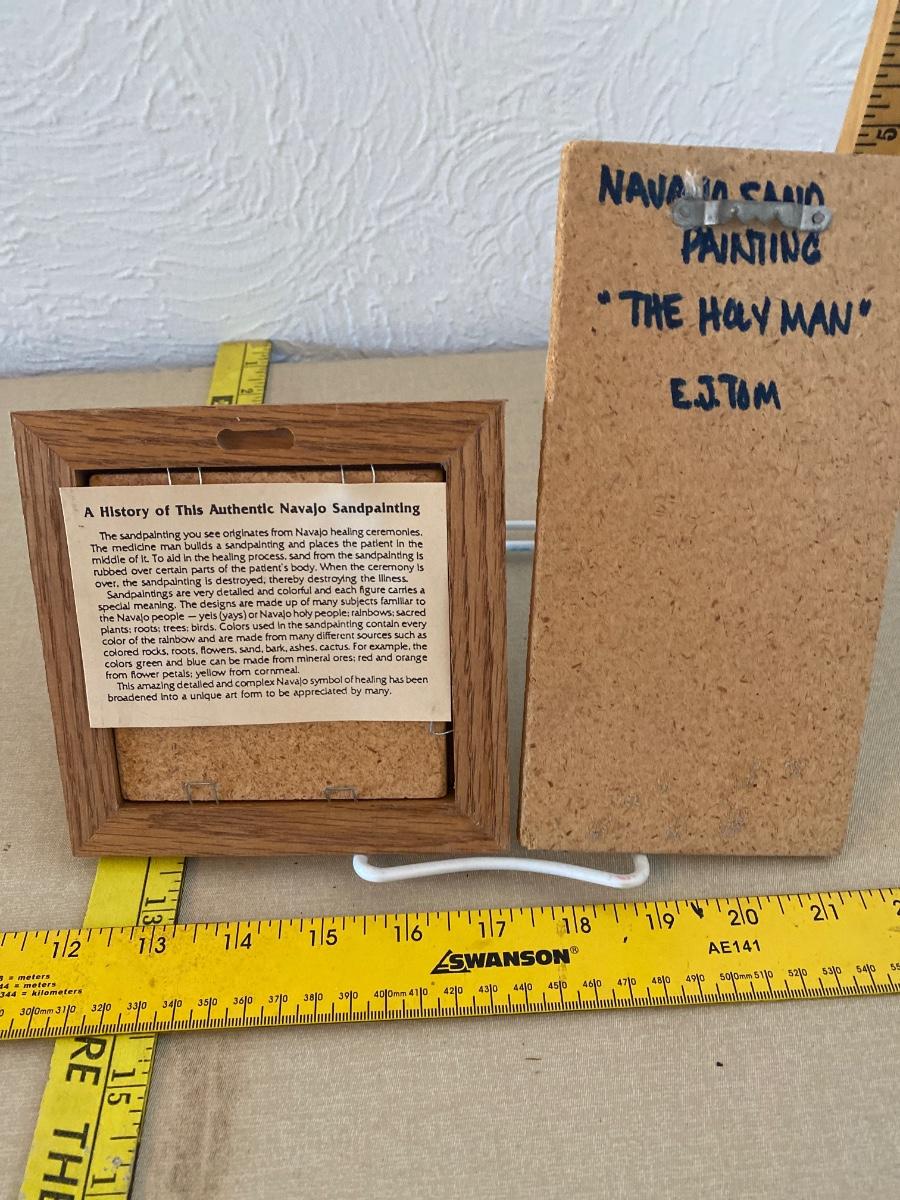 NAVAJO SAND
PAINTING
"THE HOLY MAN"
E.J. TOM
A History of This Authentic Navajo Sandpainting
The sandpainting you see originates from Navajo healing ceremonies.
The medicine man builds a sandpainting and places the patient in the
middle of it. To aid in the healing process, sand from the sandpainting is
rubbed over certain parts of the patient's body. When the ceremony is
over, the sandpainting is destroyed, thereby destroying the illness.
Sandpaintings are very detailed and colorful and each figure carries a
special meaning. The designs are made up of many subjects familiar to
the Navajo people — yeis (yays) or Navajo holy people; rainbows; sacred
plants; roots; trees; birds. Colors used in the sandpainting contain every
color of the rainbow and are made from many different sources such as
colored rocks, roots, flowers, sand, bark, ashes, cactus. For example, the
colors green and blue can be made from mineral ores; red and orange
from flower petals; yellow from cornmeal.
This amazing detailed and complex Navajo symbol of healing has been
broadened into a unique art form to be appreciated by many.
12 13 14 15 16 17 18 19 20 21
SWANSON®
AE141
= meters
= meters
344 = kilometers
30|0mm 31|0 32|0 33|0 34|0 35|0 36|0 37|0 38|0 39|0 40|0mm 41|0 42|0 43|0 44|0 45|0 46|0 47|0 48|0 49|0 50|0mm 51|0 52|0 53|0 54|0
1
2
13
RE THE
15
5